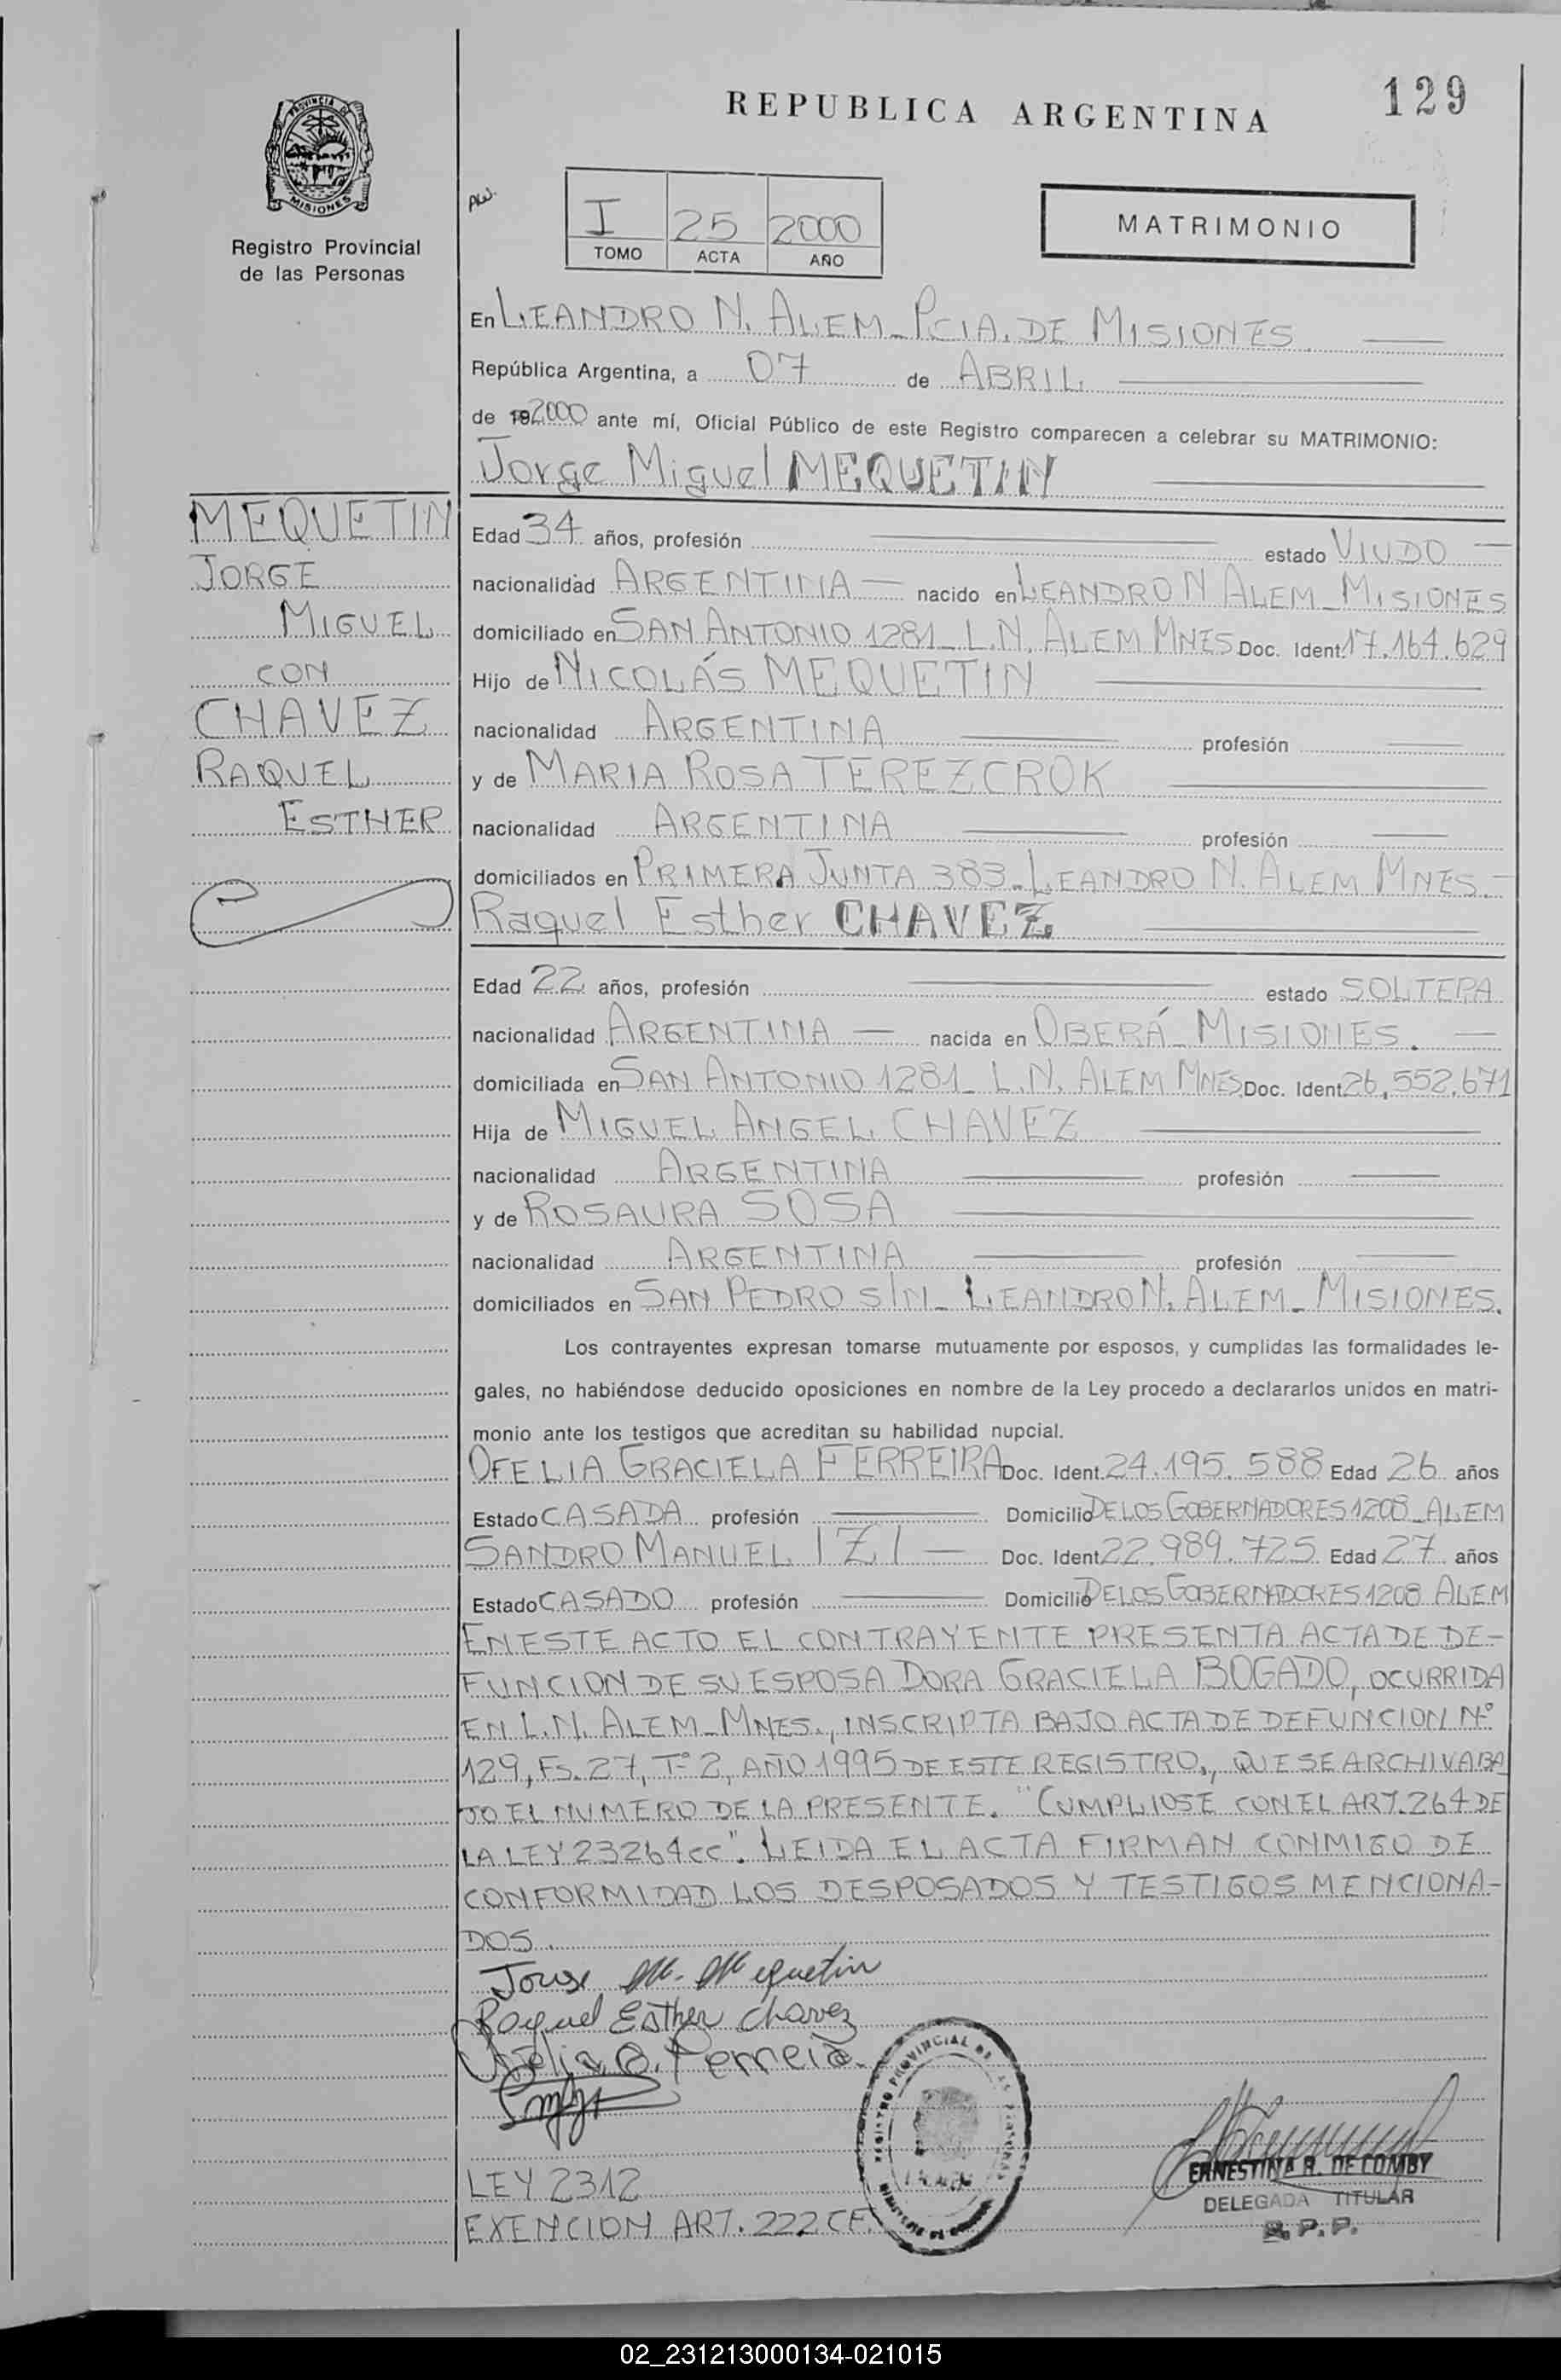 REPUBLICA ARGENTINA
129
PROVINCIA DE
MISIONES
Registro Provincial
de las Personas
I 25 2000
TOMO ACTA AÑO
MATRIMONIO
En LEANDRO N. ALEM_PCIA. DE MISIONES
República Argentina, a 07 de ABRIL
de 192000 ante mí, Oficial Público de este Registro comparecen a celebrar su MATRIMONIO:
Jorge Miguel MEQUETIN
MEQUETIN
JORGE
MIGUEL
CON
CHAVEZ
RAQUEL
ESTHER
Edad 34 años, profesión estado VIUDO
nacionalidad ARGENTINA nacido en LEANDRO N ALEM_MISIONES
domiciliado en SAN ANTONIO 1281_L.N. ALEM MNES Doc. Ident. 17.164.629
Hijo de NICOLÁS MEQUETIN
nacionalidad ARGENTINA profesión
y de MARIA ROSA TEREZCROK
nacionalidad ARGENTINA profesión
domiciliados en PRIMERA JUNTA 383_LEANDRO N. ALEM MNES.
Raquel Esther CHAVEZ
Edad 22 años, profesión estado SOLTERA
nacionalidad ARGENTINA nacida en OBERÁ_MISIONES.
domiciliada en SAN ANTONIO 1281_L.N. ALEM MNES Doc. Ident. 26.552.671
Hija de MIGUEL ANGEL CHAVEZ
nacionalidad ARGENTINA profesión
y de ROSAURA SOSA
nacionalidad ARGENTINA profesión
domiciliados en SAN PEDRO S/N_LEANDRO N. ALEM_MISIONES.
Los contrayentes expresan tomarse mutuamente por esposos, y cumplidas las formalidades le-
gales, no habiéndose deducido oposiciones en nombre de la Ley procedo a declararlos unidos en matri-
monio ante los testigos que acreditan su habilidad nupcial.
OFELIA GRACIELA FERREIRA Doc. Ident. 24.195.588 Edad 26 años
Estado CASADA profesión Domicilio DE LOS GOBERNADORES 1208_ALEM
SANDRO MANUEL IZI Doc. Ident. 22.989.725 Edad 27 años
Estado CASADO profesión Domicilio DE LOS GOBERNADORES 1208 ALEM
EN ESTE ACTO EL CONTRAYENTE PRESENTA ACTA DE DE-
FUNCION DE SU ESPOSA DORA GRACIELA BOGADO, OCURRIDA
EN L.N. ALEM_MNES., INSCRIPTA BAJO ACTA DE DEFUNCION Nº
129, FS. 27, Tº 2, AÑO 1995 DE ESTE REGISTRO., QUE SE ARCHIVA BA
JO EL NUMERO DE LA PRESENTE. "CUMPLIOSE CON EL ART. 264 DE
LA LEY 23264 CC". LEIDA EL ACTA FIRMAN CONMIGO DE
CONFORMIDAD LOS DESPOSADOS Y TESTIGOS MENCIONA-
DOS.
Jorge M. Mequetin
Raquel Esther Chavez
Ofelia G. Ferreira
REGISTRO PROVINCIAL DE LAS PERSONAS
ERNESTINA R. DE COMBY
DELEGADA TITULAR
R. P. P.
LEY 2312
EXENCION ART. 222 CF.
02_231213000134-021015